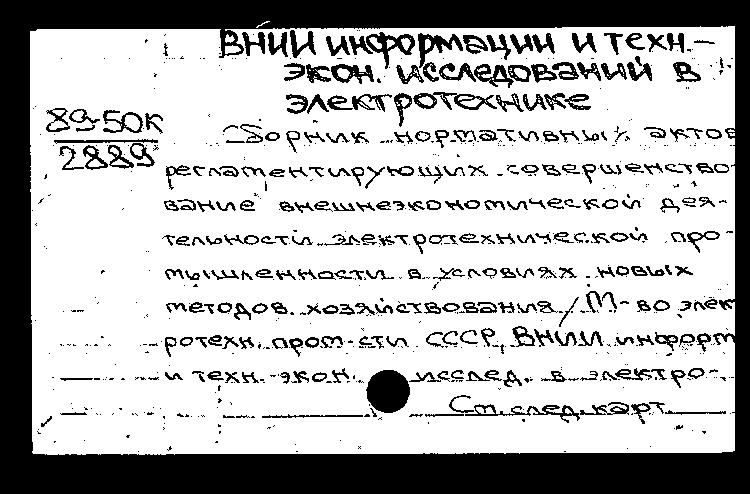 ВНИИ информации и техн.-
экон. исследований в
электротехнике
89-50К
2889
Сборник нормативных актов
регламентирующих совершенство-
вание внешнеэкономической дея-
тельности электротехнической про-
мышленности в условиях новых
методов хозяйствования / М-во элек
ротехн. пром-сти СССР, ВНИИ информ
и техн.-экон. исслед. в электро-.
См. след. карт.